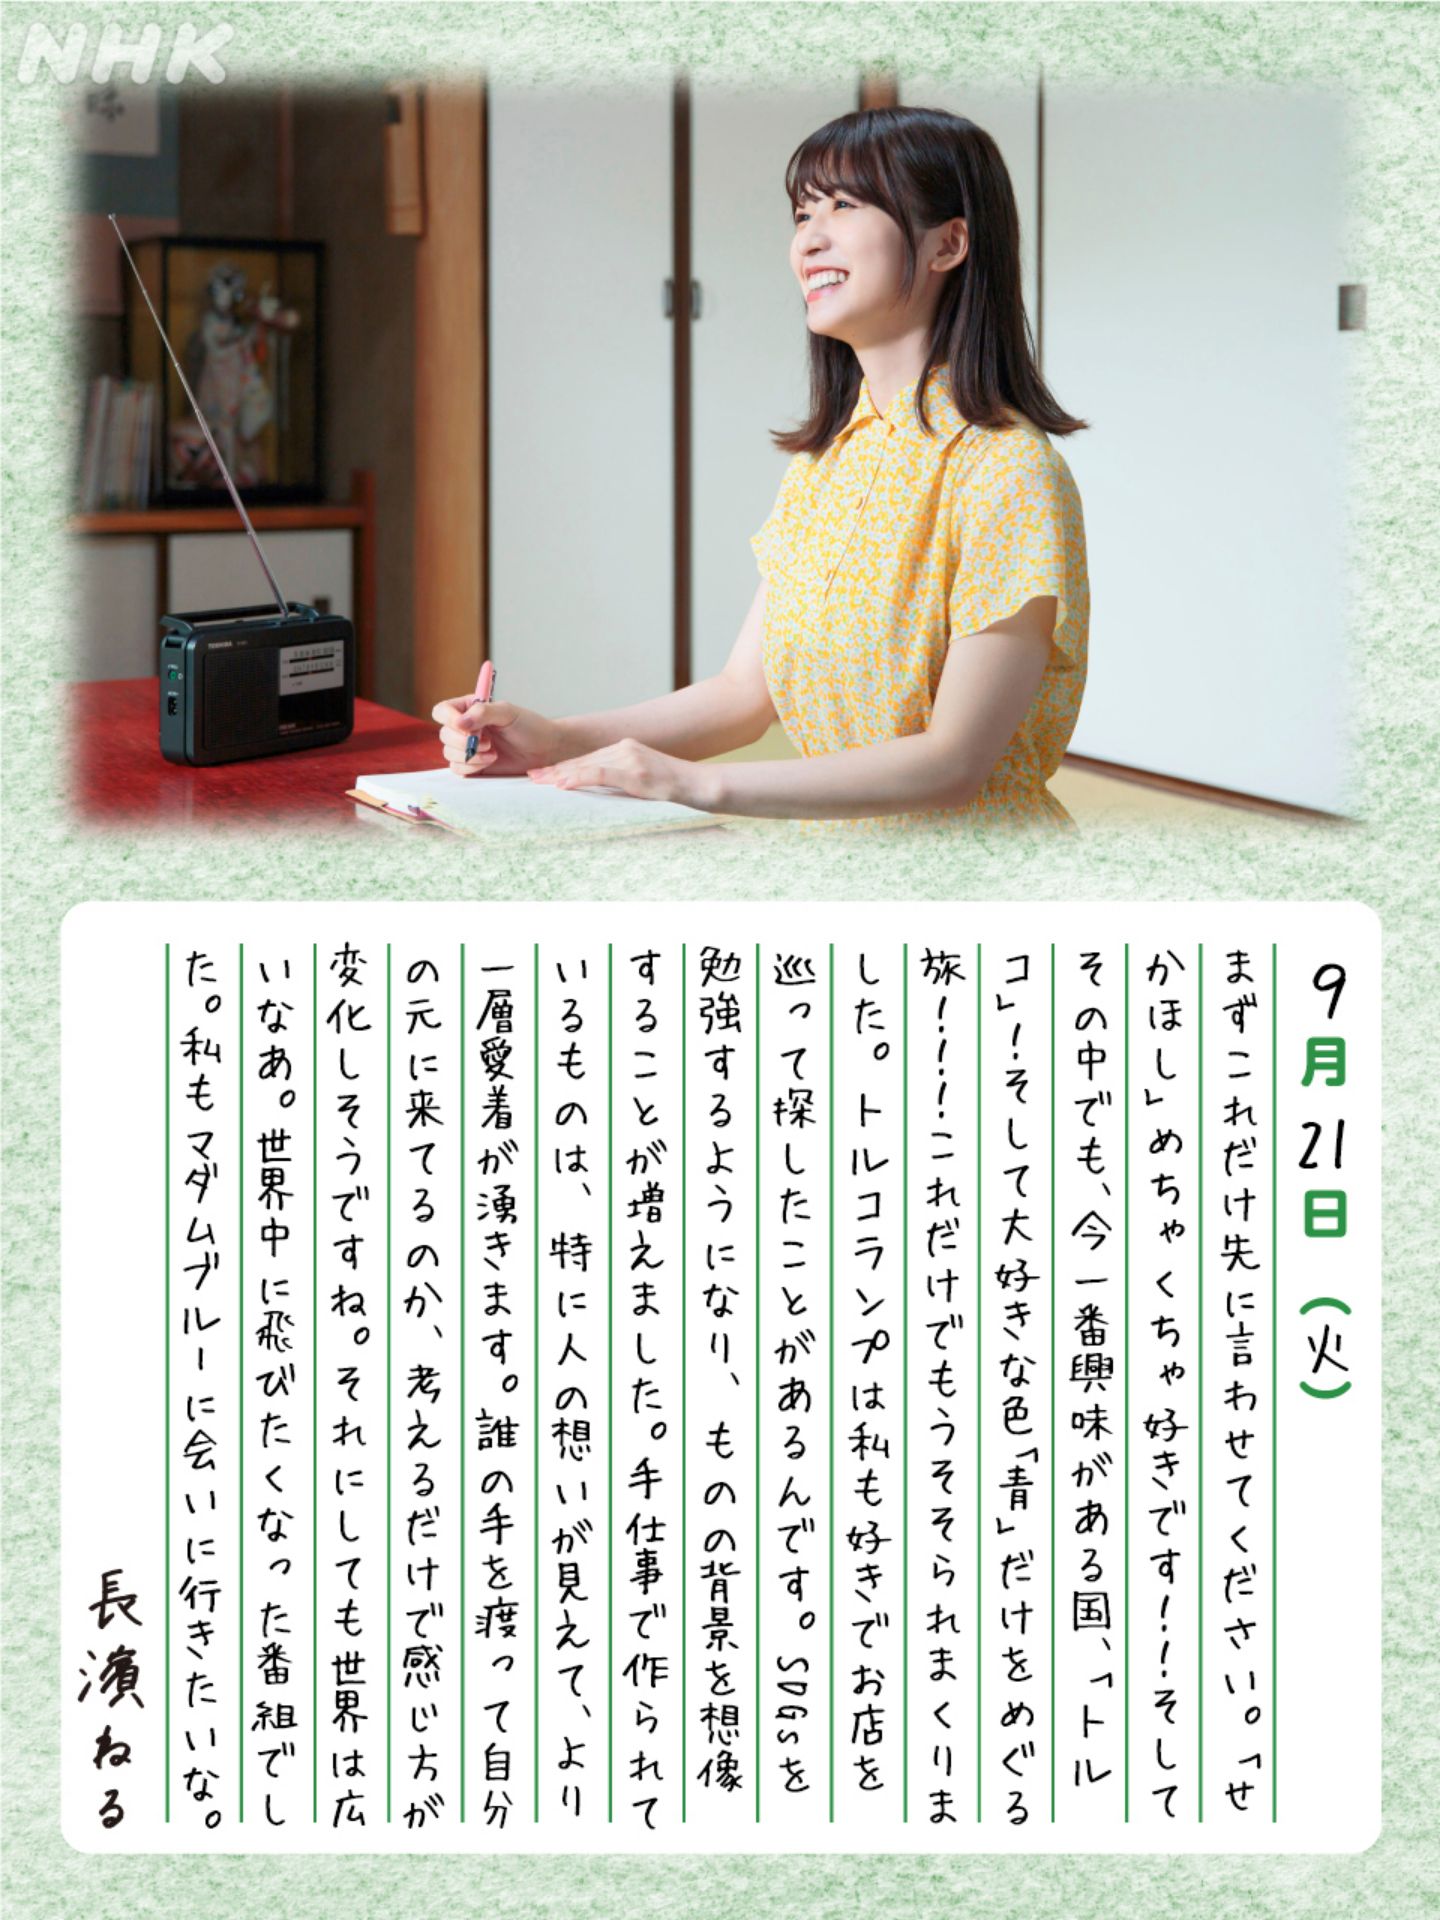 NHK
味
TOSHIBA
9月21日（火）
まずこれだけ先に言わせてください。「せ
かほし」めちゃくちゃ好きです！！そして
その中でも、今一番興味がある国、「トル
コ」！そして大好きな色「青」だけをめぐる
旅！！！！これだけでもうそそられまくりま
した。トルコランプは私も好きでお店を
巡って探したことがあるんです。SDGsを
勉強するようになり、ものの背景を想像
することが増えました。手仕事で作られて
いるものは、特に人の想いが見えて、より
一層愛着が湧きます。誰の手を渡って自分
の元に来てるのか、考えるだけで感じ方が
変化しそうですね。それにしても世界は広
いなあ。世界中に飛びたくなった番組でし
た。私もマダムブルーに会いに行きたいな。
長濱ねる